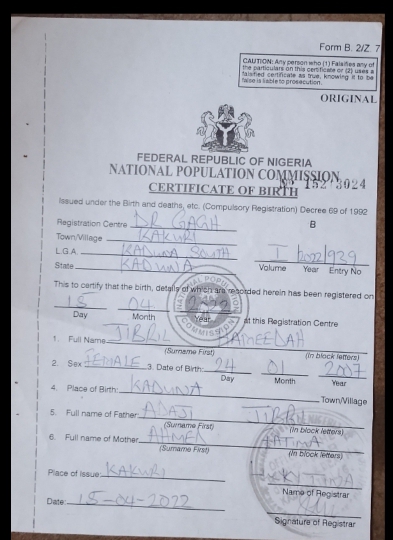 Form B. 2/Z. 7
CAUTION: Any person who (1) Falsifies any of
the particulars on this certificate or (2) uses a
falsified certificate as true, knowing it to be
false is liable to prosecution.
ORIGINAL
FEDERAL REPUBLIC OF NIGERIA
NATIONAL POPULATION COMMISSION
CERTIFICATE OF BIRTH
Issued under the Birth and deaths, etc. (Compulsory Registration) Decree 69 of 1992
Registration Centre DR GAGH B
Town/Village KAKURI
L.G.A. KADUNA SOUTH I 2022 939
State KADUNA Volume Year Entry No
This to certify that the birth, details of which are recorded herein has been registered on
15 04 2022 at this Registration Centre
Day Month Year
1. Full Name JIBRIL HAMEEDAH
(Surname First) (In block letters)
2. Sex FEMALE 3. Date of Birth: 24 01 2007
Day Month Year
4. Place of Birth: KADUNA Town/Village
5. Full name of Father: ADAJI JIBRIL
(Surname First) (In block letters)
6. Full name of Mother: AHMED FATIMA
(Surname First) (In block letters)
Place of Issue: KAKURI
Name of Registrar
Date: 15-04-2022
Signature of Registrar
NATIONAL POPULATION COMMISSION